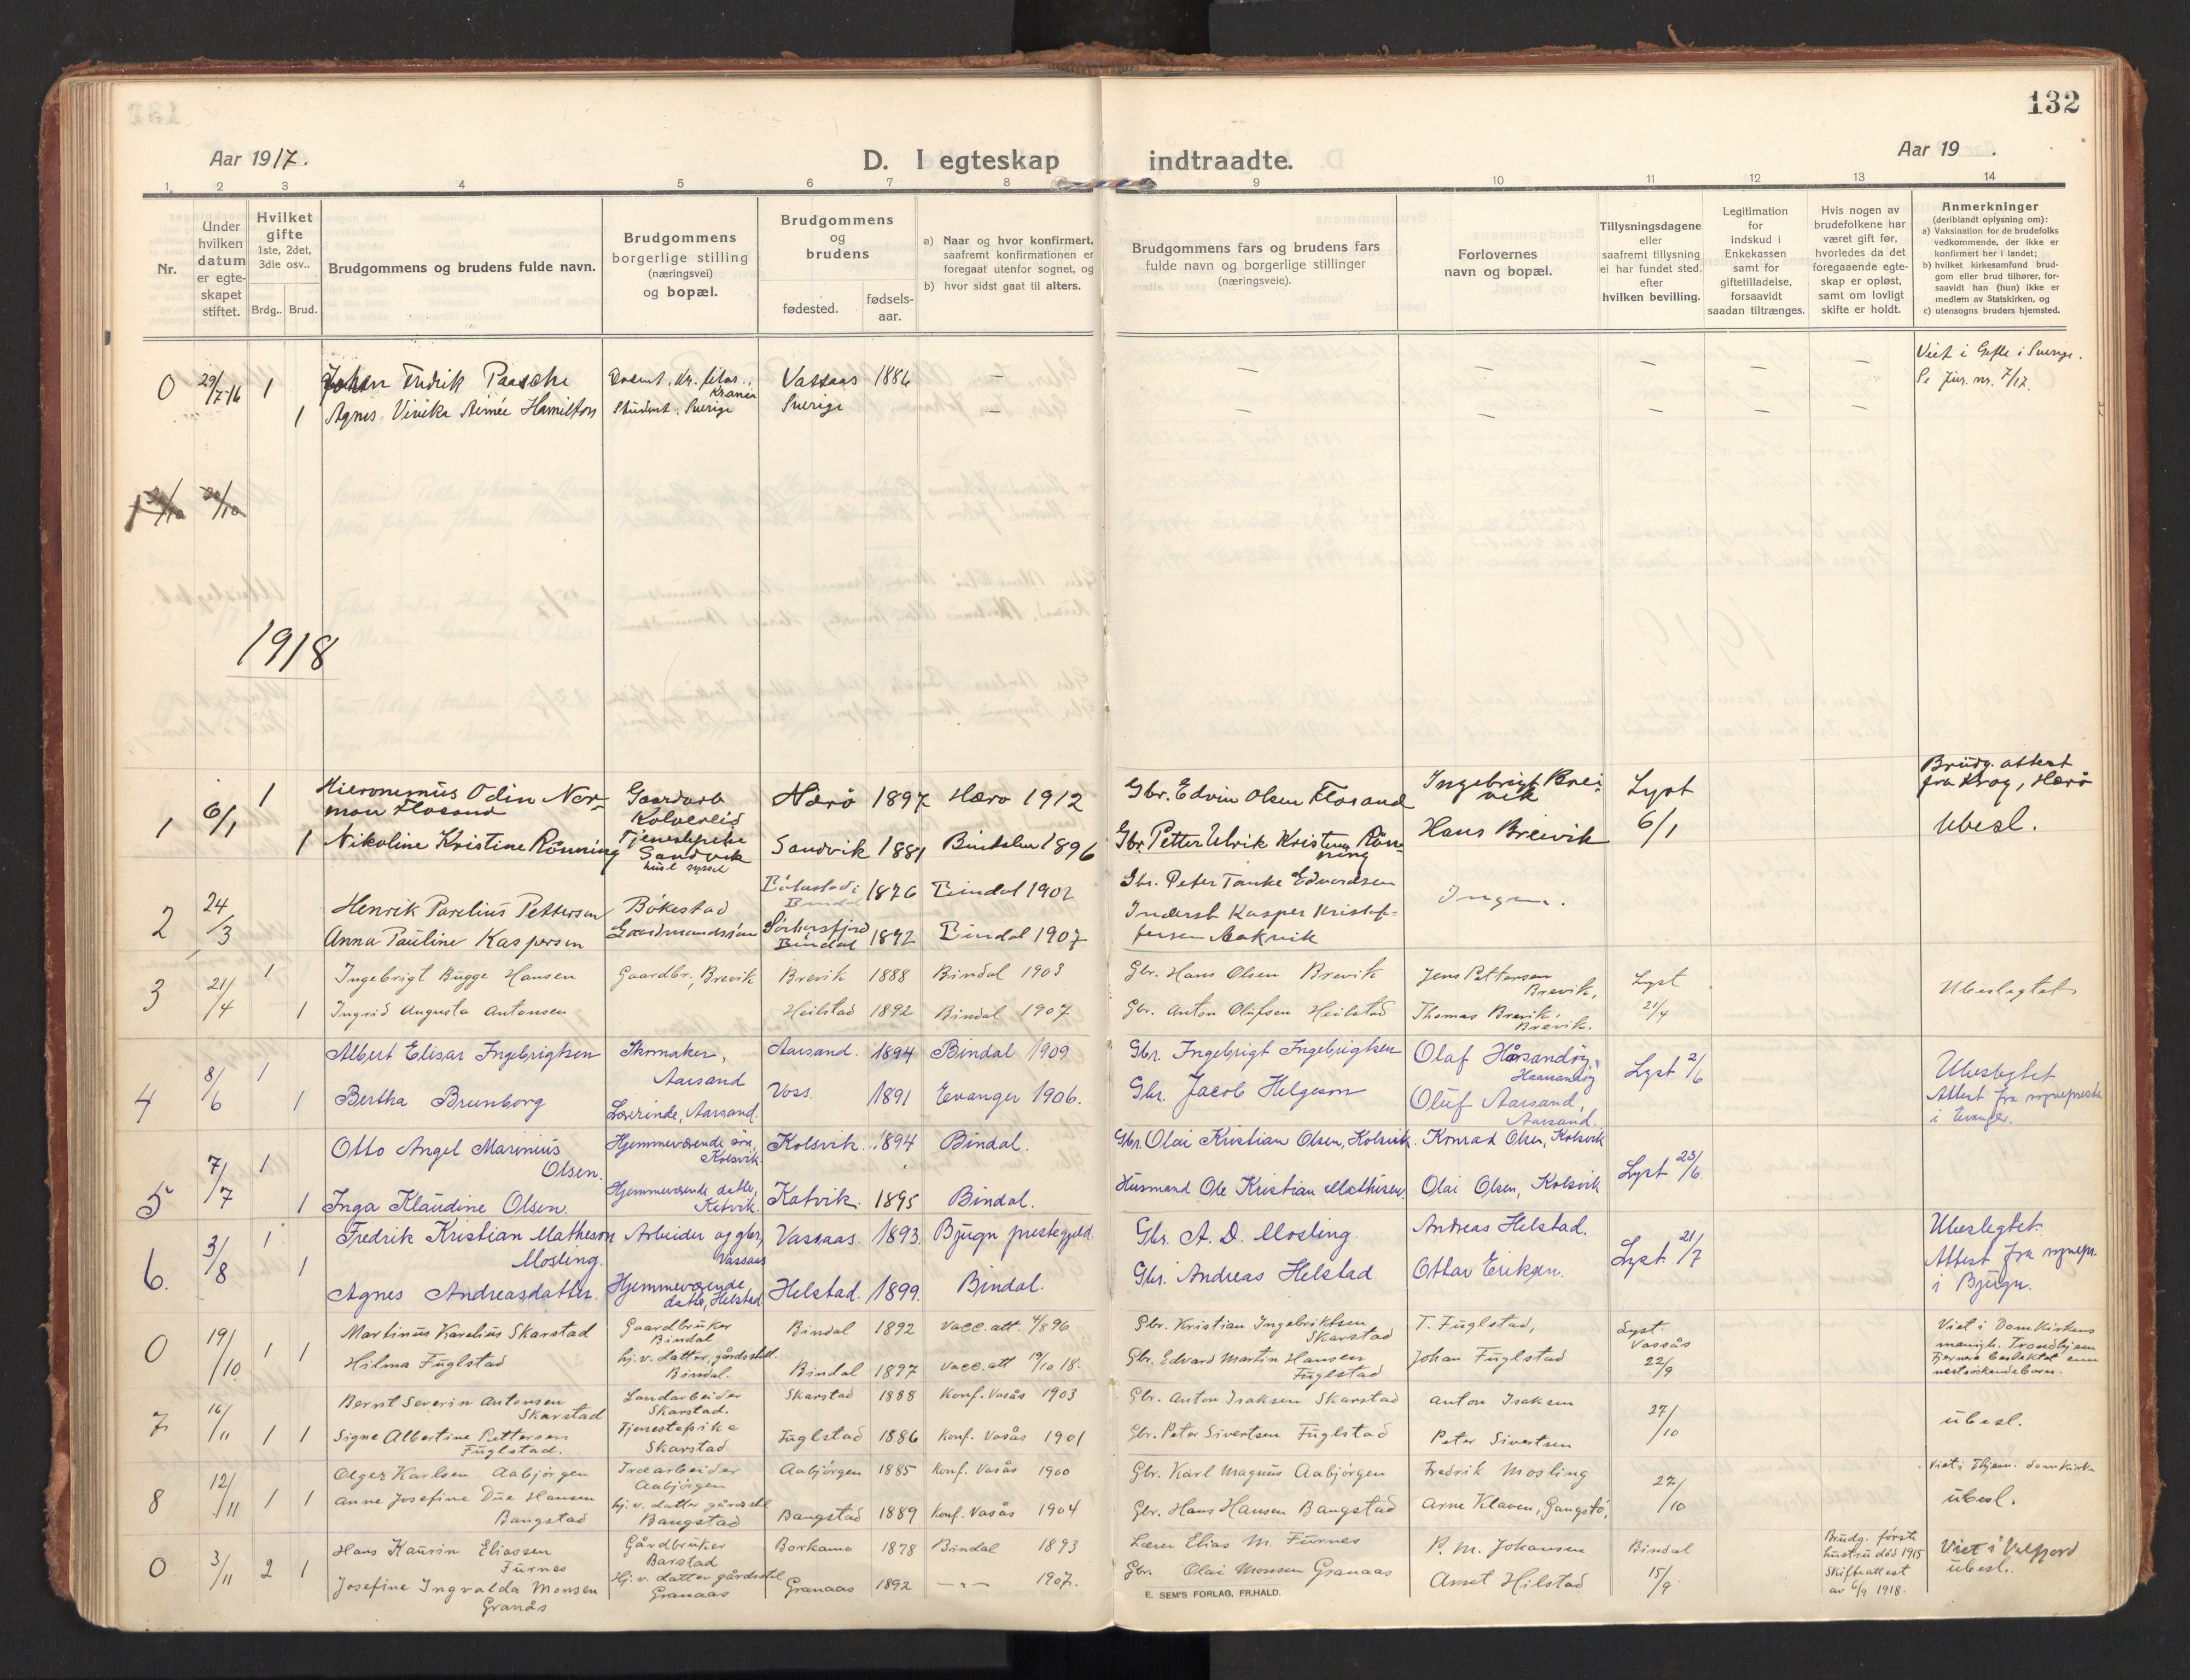 132
Aar 1917.
D. I egteskap indtraadte.
Aar 19 .
1. 2 3 4 5 6 7 8 9 10 11 12 13 14
Nr.
Under hvilken datum er egteskapet stiftet.
Hvilket gifte 1ste, 2det, 3die osv..
Brdg.. Brud.
Brudgommens og brudens fulde navn.
Brudgommens borgerlige stilling (næringsvei) og bopæl.
Brudgommens og brudens
fødested.
fødsels-aar.
a) Naar og hvor konfirmert, saafremt konfirmationen er foregaat utenfor sognet, og
b) hvor sidst gaat til alters.
Brudgommens fars og brudens fars fulde navn og borgerlige stillinger (næringsveie).
Forlovernes navn og bopæl.
Tillysningsdagene eller saafremt tillysning ei har fundet sted. efter hvilken bevilling.
Legitimation for indskud i Enkekassen samt for giftetilladelse, forsaavidt saadan tiltrænges.
Hvis nogen av brudefolkene har været gift før, hvorledes da det foregaaende egteskap er opløst, samt om lovligt skifte er holdt.
Anmerkninger (deriblandt oplysning om):
a) Vaksination for de brudefolks vedkommende, der ikke er konfirmert her i landet;
b) hvilket kirkesamfund brudgom eller brud tilhører, forsaavidt han (hun) ikke er medlem av Statskirken, og
c) utensogns bruders hjemsted.
0 29/7-16 1 Johan Fredrik Paasche Docent, dr. filos., Krania Vassaas 1886 — — — — — — Viet i Gefle i Sverige. Se Jur. nr. 7/17.
1 Agnes Viveke Aimée Hamilton Student, Sverige Sverige — — — — — —
20/10
1918
1 6/1 1 Hieronymus Odin Norman Flosand Gaardarb Kolvereid Nærö 1897 Hærö 1912 Gbr. Edvin Olsen Flosand Ingebrigt Breivik Lyst 6/1 Brudg. attest fra Krog, Nærö
1 Nikoline Kristine Rönning Tjenestepike Sandvik Sandvik 1881 Bindalen 1896 Gbr. Petter Ulrik Kristens Rönning Hans Breivik Ubesl.
2 24/3 Henrik Parelius Pettersen Bökestad Bökestad Bindal 1876 Bindal 1902 Gbr. Peter Tanke Edvardsen Ingen.
Anna Pauline Kaspersen Sörhorsfjord Bindal 1892 Bindal 1907 Inderst Kasper Kristoffersen Aakvik
3 21/4 1 Ingebrigt Bugge Hansen Gaardbr., Brevik Brevik 1888 Bindal 1903 Gbr. Hans Olsen Brevik Jens Pettersen Brevik, Lyst 21/4 Ubeslegtet
1 Ingrid Augusta Antonsen Heilstad 1892 Bindal 1907 Gbr. Anton Olufsen Heilstad Thomas Brevik, Brevik.
4 8/6 1 Albert Elisar Ingebrigtsen Skomaker, Aarsand Aarsand. 1894 Bindal 1909 Gbr. Ingebrigt Ingebrigtsen Olaf Hårsandöy, Lyst 2/6 Ubeslegtet
1 Bertha Brunborg Lærerinde, Aarsand. Voss. 1891 Evanger 1906. Gbr. Jacob Helgeson Oluf Aarsand, Aarsand. Attest fra sogneprest i Evanger.
5 7/7 1 Otto Angel Marinius Olsen. Hjemmeværende sön, Kolsvik. Kolsvik 1894 Bindal. Gbr. Olai Kristian Olsen, Kolsvik. Konrad Olsen, Kolsvik Lyst 23/6.
1 Inga Klaudine Olsen. Hjemmeværende datter, Katvik. Katvik. 1895 Bindal. Husmand Ole Kristian Mathisen. Olai Olsen, Kolsvik
6. 3/8 1 Fredrik Kristian Matheson Mosling. Arbeider og gbr, Vassaas Vassaas. 1893. Bjugn prestegjeld. Gbr. A. D. Mosling. Andreas Helstad. Lyst. 21/7 Ubeslegtet.
1 Agnes Andreasdatter. Hjemmeværende datter, Helstad. Helstad. 1899. Bindal. Gbr. Andreas Helstad. Ottar Eriksen. Attest fra sognepr. i Bjugn.
0 19/10 1 1 Martinus Karelius Skarstad Gaardbruker Bindal Bindal 1892 Vacc. att. 4/8 96 Gbr. Kristian Ingebriktsen Skarstad T. Fuglstad, Lyst. Vassås 22/9 Viet i Domkirkens menigh. Trondhjem Fjernere beslektet enn nestsöskendebarn.
Hilma Fuglstad hj. v. datter, gårdsstel. Bindal. Bindal 1897 Vacc. att 19/10 18. Gbr. Edvard Martin Hansen Fuglstad Johan Fuglstad
7 16/11 1 1 Bernt Severin Antonsen Skarstad Landarbeider Skarstad. Skarstad 1888 Konf. Vasås 1903 Gbr. Anton Isaksen Skarstad Anton Isaksen 27/10 ubesl.
Signe Albertine Pettersen Fuglstad. Tjenestepike Skarstad Fuglstad 1886 Konf. Vasås 1901 Gbr. Peter Sivertsen Fuglstad Peter Sivertsen
8 12/11 1 1 Olger Karlsen Aabjörgen Træarbeider Aabjörgen Aabjörgen 1885 Konf. Vasås 1900 Gbr. Karl Magnus Aabjörgen Fredrik Mosling 27/10 Viet i Thjem. domkirke
Anne Josefine Due Hansen Bangstad hj. v. datter gårdsstel Bangstad Bangstad 1889 Konf. Vasås 1904 Gbr. Hans Hansen Bangstad Arne Klaven, Gangstö, ubesl.
0 3/11 2 1 Hans Kaurin Eliassen Furnes Gårdbruker Barstad Borkamo 1878 Bindal 1893 Lærer Elias M. Furnes P. M. Johansen Bindal 15/9 Brudg. förste hustru död 1915 Skifteattest av 6/9 1918. Viet i Velfjord ubesl.
Josefine Ingvalda Monsen Granås Hj. v. datter gårdsstel Granaas Granaas 1892 —"— 1907. Gbr. Olai Monsen Granaas Arnet Hilstad
E. SEM'S FORLAG, FR.HALD.